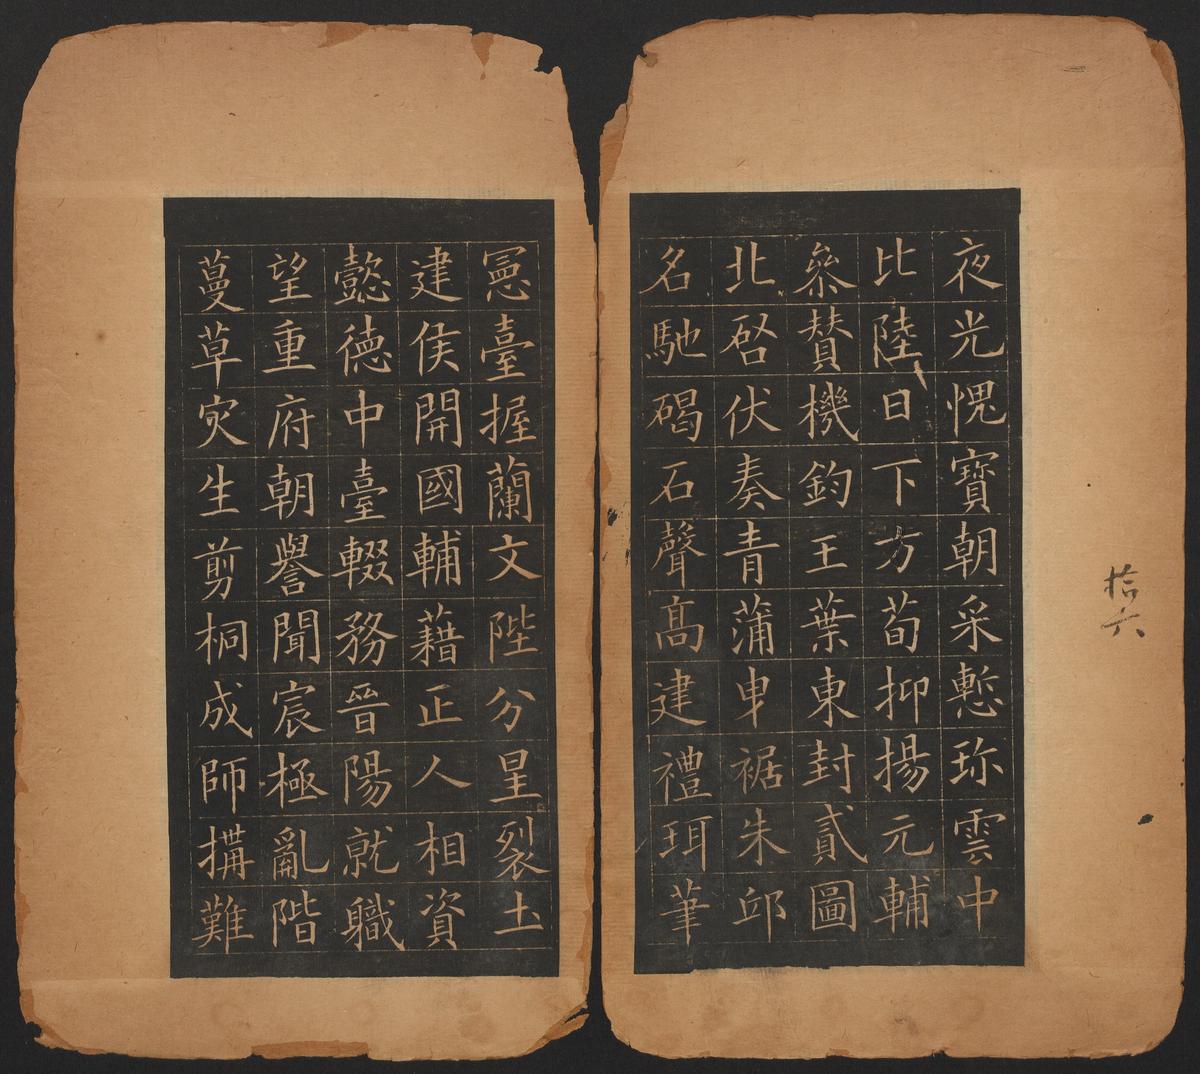 夜光愧寶朝采慙珎雲中
比陸日下方荀抑揚元輔
叅賛機鈞王葉東封貳圖
北啓伏奏青蒲曳裾朱邱
名馳碣石聲髙建禮珥筆
憲臺握蘭文陛分星裂土
建侯開國輔藉正人相資
懿德中臺輟務晉陽就職
望重府朝譽聞宸極亂階
蔓草灾生剪桐成師搆難
拾六